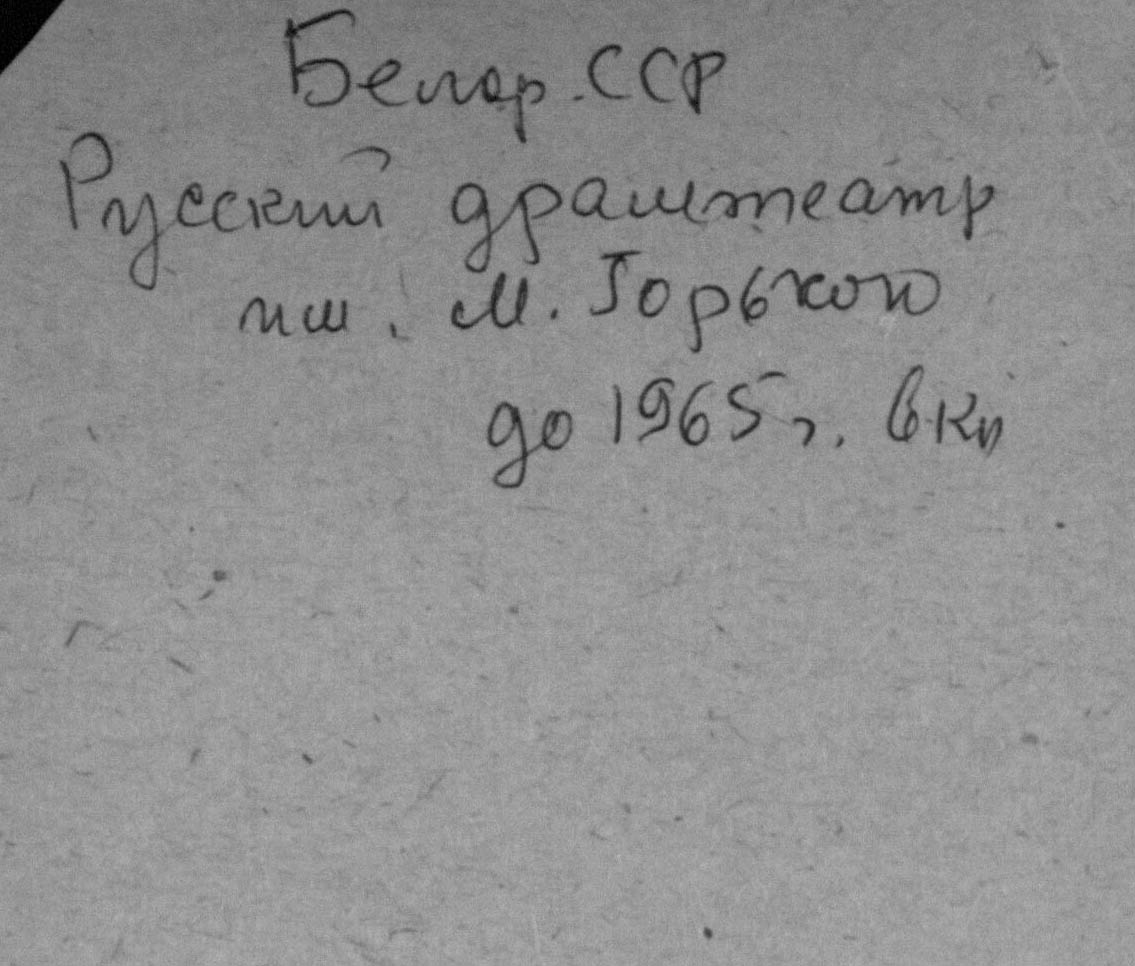 Белор. ССР
Русский драмтеатр
им. М. Горького
до 1965 г.